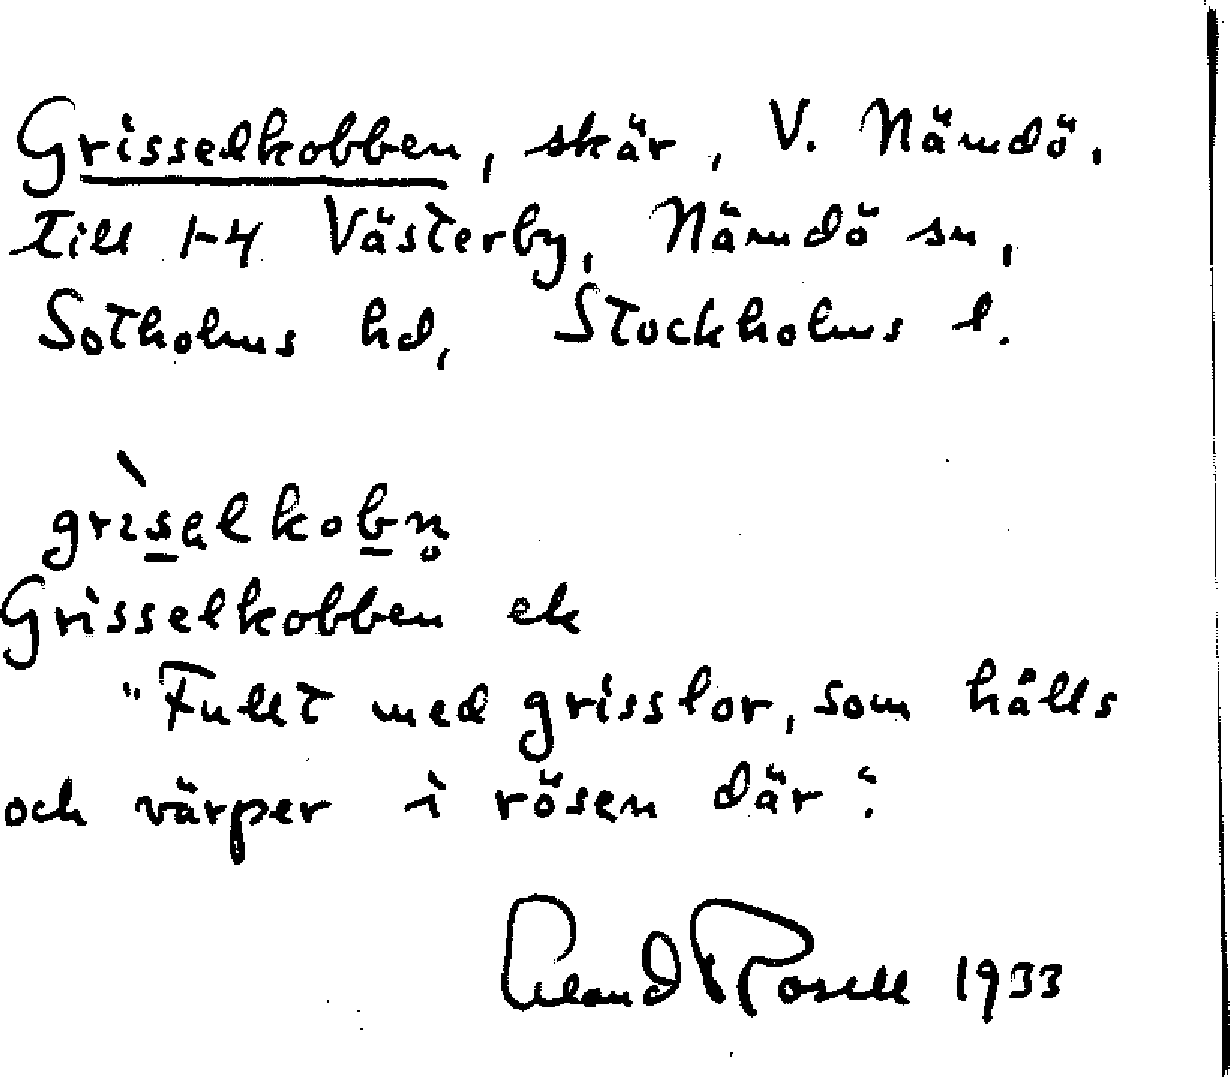 Grisselkobben, skär, V. Nämdö.
till 1-4 Västerby, Nämdö sn,
Sotholms hd, Stockholms l.
grìsəlkobn̥
Grisselkobben ek
"Fullt med grisslor, som hålls
och värper i rösen där".
Erland Rosell 1933